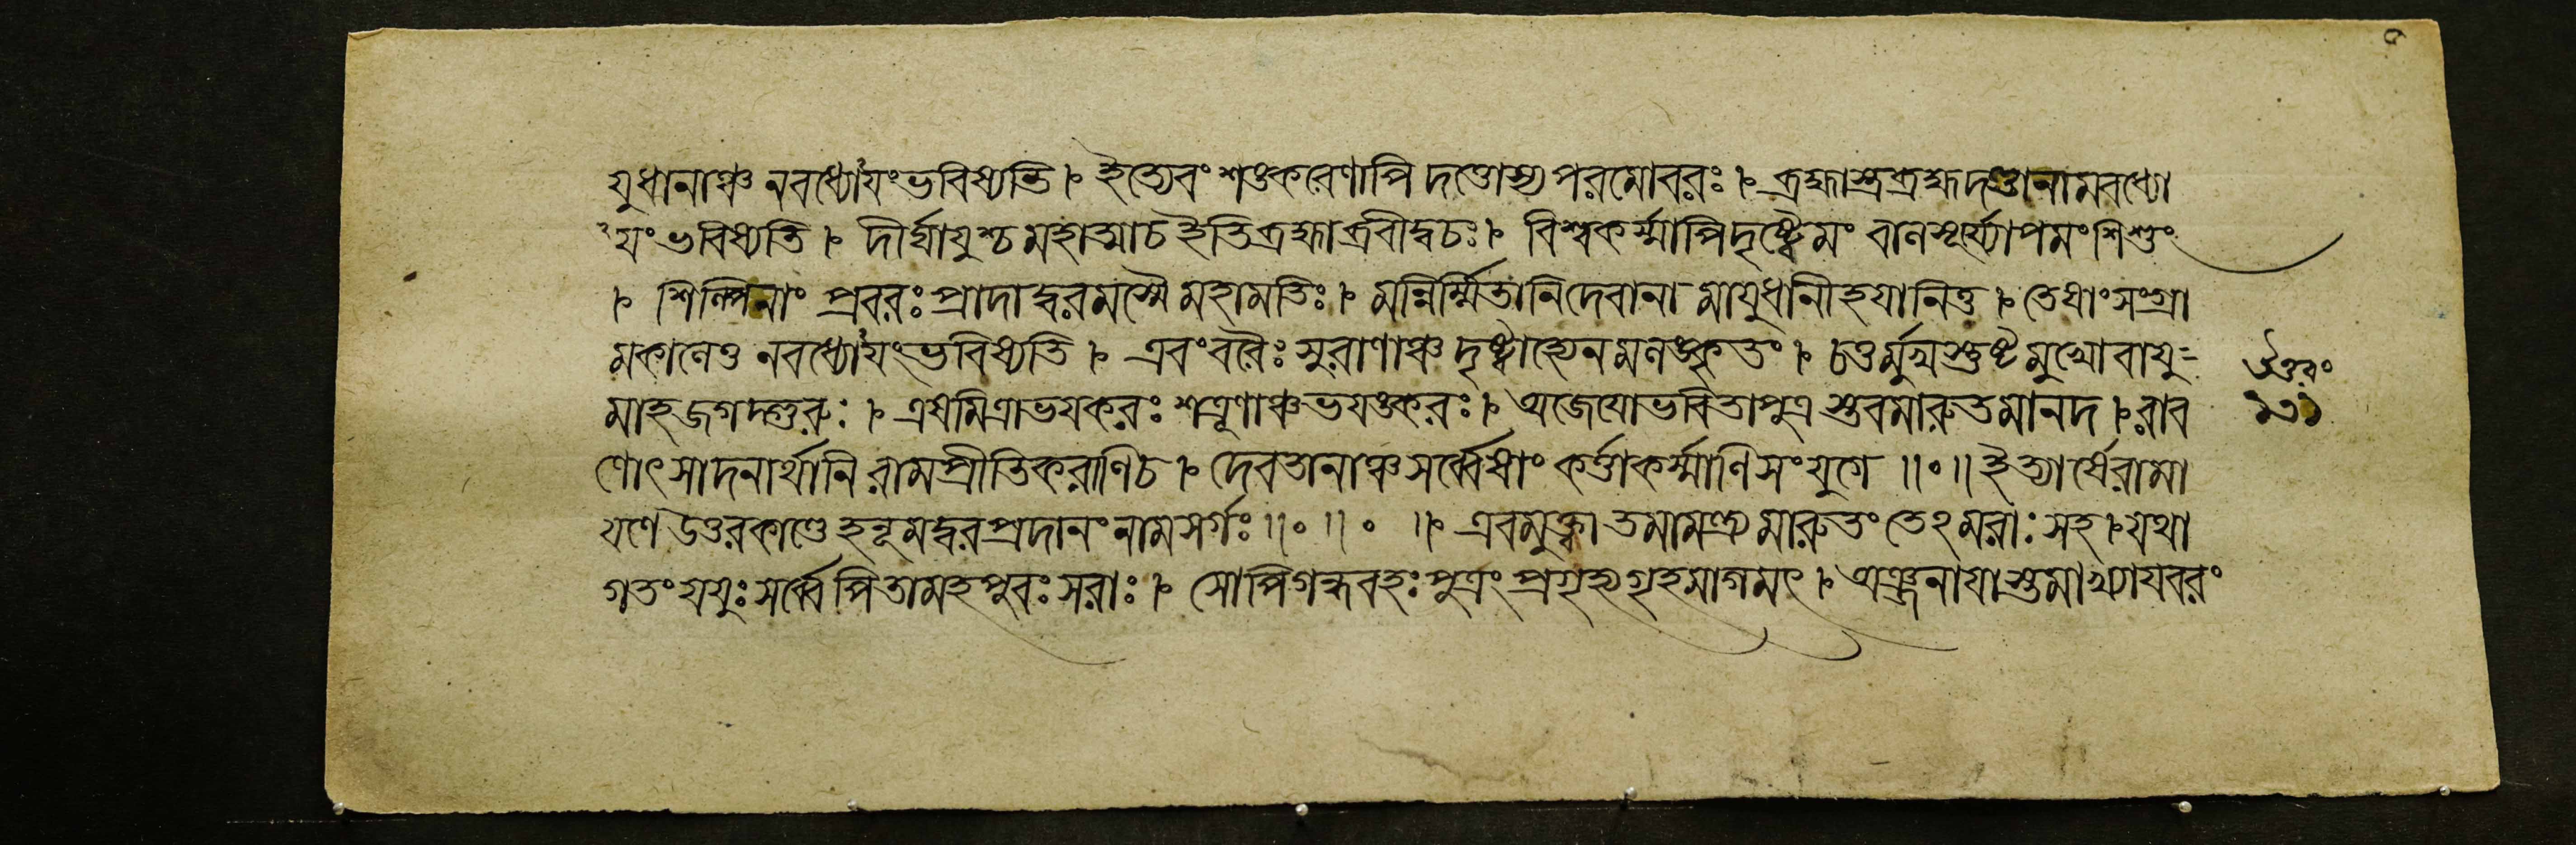 যুধানাঞ্চ নবধ্যোঽযংভবিষ্যতি । ইত্যেবং শঙ্করেণাপি দত্তোস্য পরমোবরঃ । ব্রহ্মাস্ত্রব্রহ্মদণ্ডানামবধ্যো
ঽযংভবিষ্যতি । দীর্ঘাযুশ্চ মহাত্মাচ ইতিব্রহ্মাব্রবীদ্বচঃ । বিশ্বকর্ম্মাপিদৃষ্ট্বৈমং বালসূর্য্যোপমংশিশুং
। শিল্পিনাং প্রবরঃ প্রাদাদ্বরমস্মৈ মহামতিঃ । মন্নির্ম্মিতানিদেবানা মাযুধানীহযানিতু । তেষাংসংগ্রা
মকালেতু নবধ্যোঽযংভবিষ্যতি । এবংবরৈঃ সুরাণাঞ্চ দৃষ্ট্বাহ্যেনমলঙ্কৃতং । চতুর্মুখস্তুষ্টমুখোবাযু
মাহজগদ্গুরুঃ । এষমিত্রাভযকরঃ শত্রূণাঞ্চভযঙ্করঃ । অজেযোভবিতাপুত্র স্তবমারুতমানদ । রাব
ণোৎসাদনার্থানি রামপ্রীতিকরাণিচ । দেবতানাঞ্চসর্ব্বেষাং কর্ত্তাকর্ম্মাণিসংযুগে ॥॰॥ ইত্যার্ষেরামা
যণে উত্তরকাণ্ডে হনূমদ্বরপ্রদানংনামসর্গঃ ॥॰॥॰ ॥ এবমুক্ত্বাতমামন্ত্র্য মারুতং তেঽমরাঃ সহ । যথা
গতংযযুঃ সর্ব্বে পিতামহপুরঃসরাঃ । সোপিগন্ধবহঃ পুত্রং প্রগৃহ্যগৃহমাগমৎ । অঞ্জনাযাস্তমাখ্যাযবরং